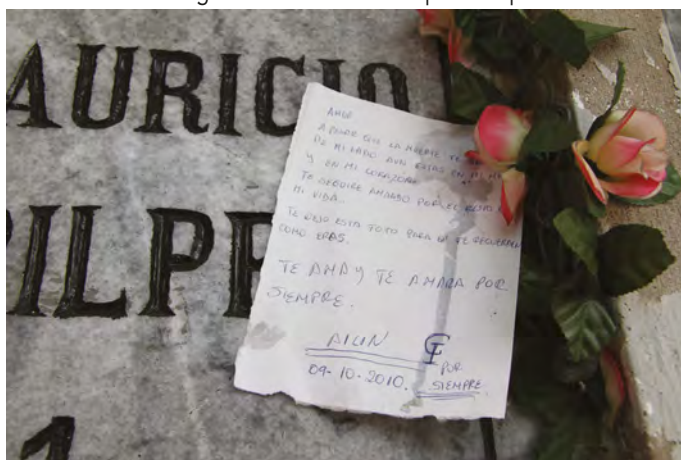 AURICIO
ILPE
1
AMOR
A PESAR QUE LA MUERTE TE
DE MI LADO AUN ESTAS EN MI
Y EN MI CORAZON.
TE SEGUIRE AMANDO POR EL RESTO
MI VIDA.
TE DEJO ESTA FOTO PARA TE
COMO ERAS.
TE AMA Y TE AMARA POR
SIEMPRE.
AILIN
POR
09-10-2010. SIEMPRE.